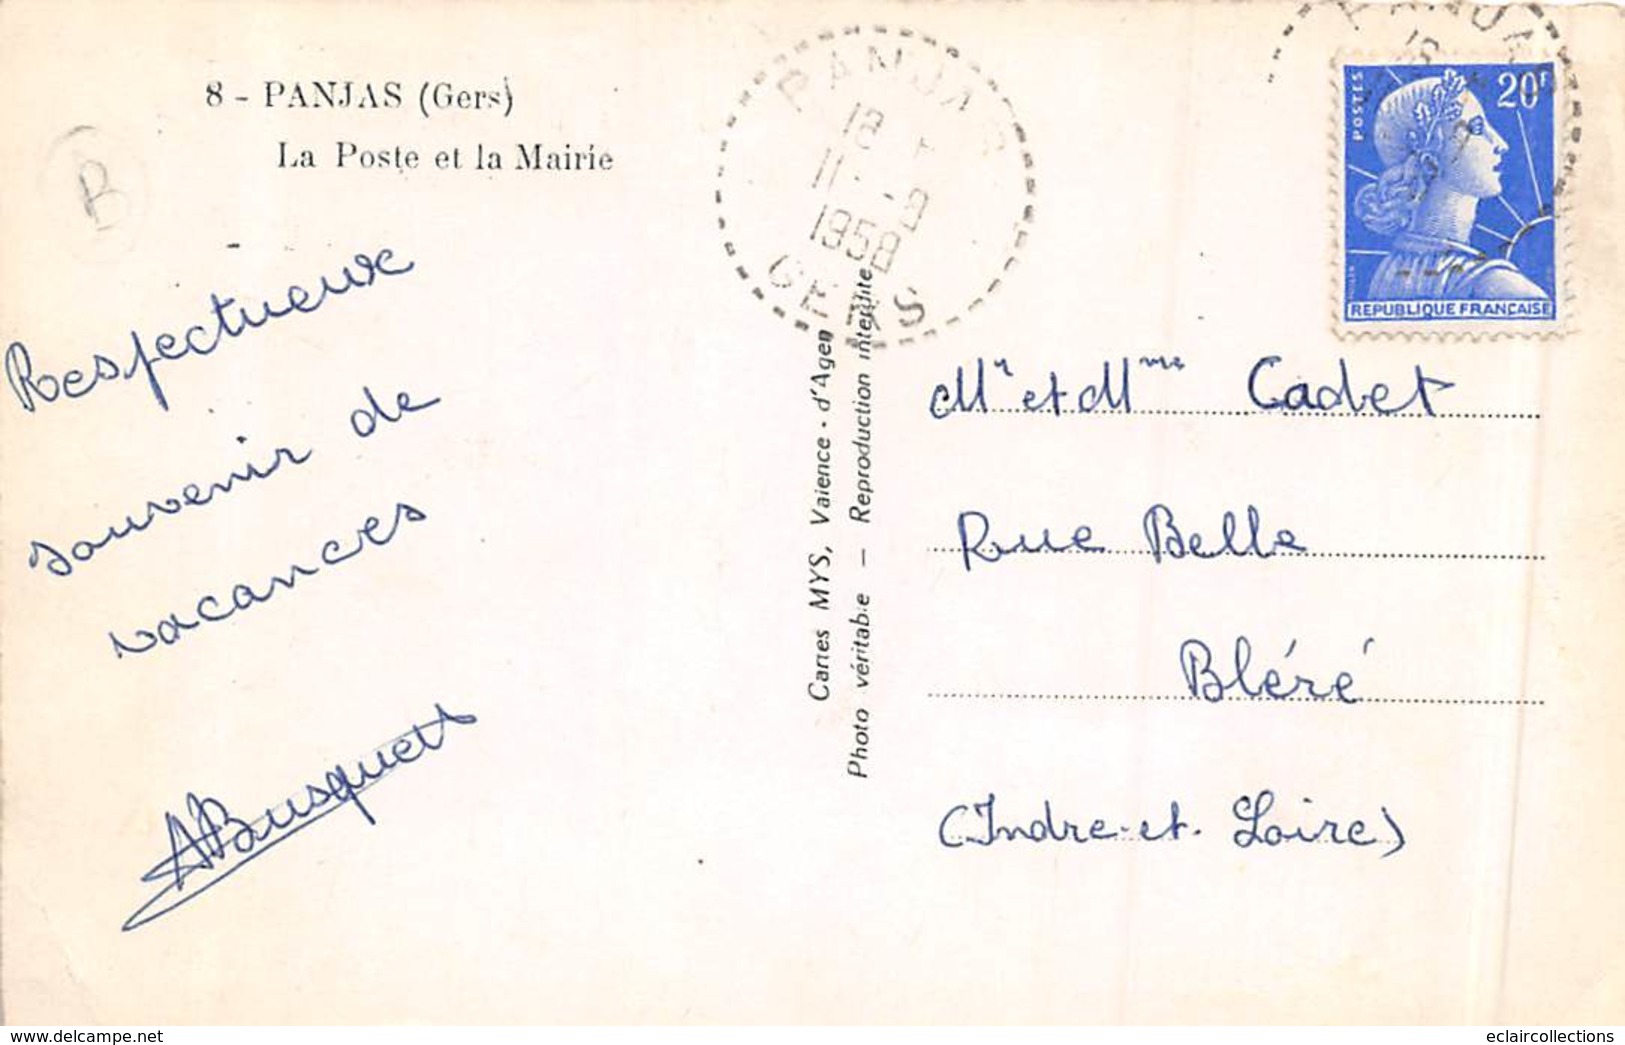 8 - PANJAS (Gers)
La Poste et la Mairie
B
Respectueux
souvenir de
vacances
ABusquets
PANJAS
18
11 -9
1958
GERS
Cartes MYS, Valence - d'Agen
Photo véritable — Reproduction interdite
POSTES
20F
REPUBLIQUE FRANÇAISE
Mr et Mme Cadet
Rue Belle
Bléré
(Indre-et-Loire)
© www.delcampe.net
eclaircollections